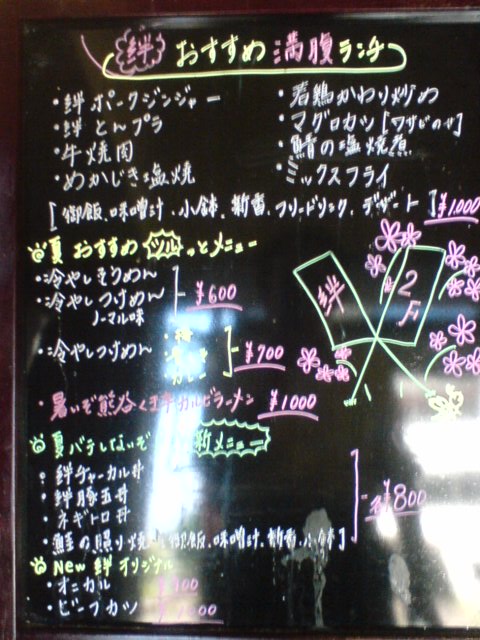 絆 おすすめ 満腹ランチ
・絆 ポークジンジャー
・絆 とんプラ
・牛焼肉
・めかじき塩焼
・若鶏かわり炒め
・マグロカツ[ワサビのせ]
・鯖の塩焼煮
・ミックスフライ
[御飯、味噌汁、小鉢、新香、フリードリンク、デザート]¥1,000
夏 おすすめ ツルっとメニュー
・冷やしきりめん
・冷やしつけめん
ノーマル味
¥600
・冷やしつけめん
¥700
・暑いぞ熊谷 牛カルビラーメン ¥1000
絆
2F
夏バテしないぞ 新メニュー
・絆チャーカル丼
・絆豚玉丼
・ネギトロ丼
・鮭の照り焼 御飯、味噌汁、新香、小鉢]
各¥800
New 絆 オリジナル
・オニカル ¥900
・ビーフカツ